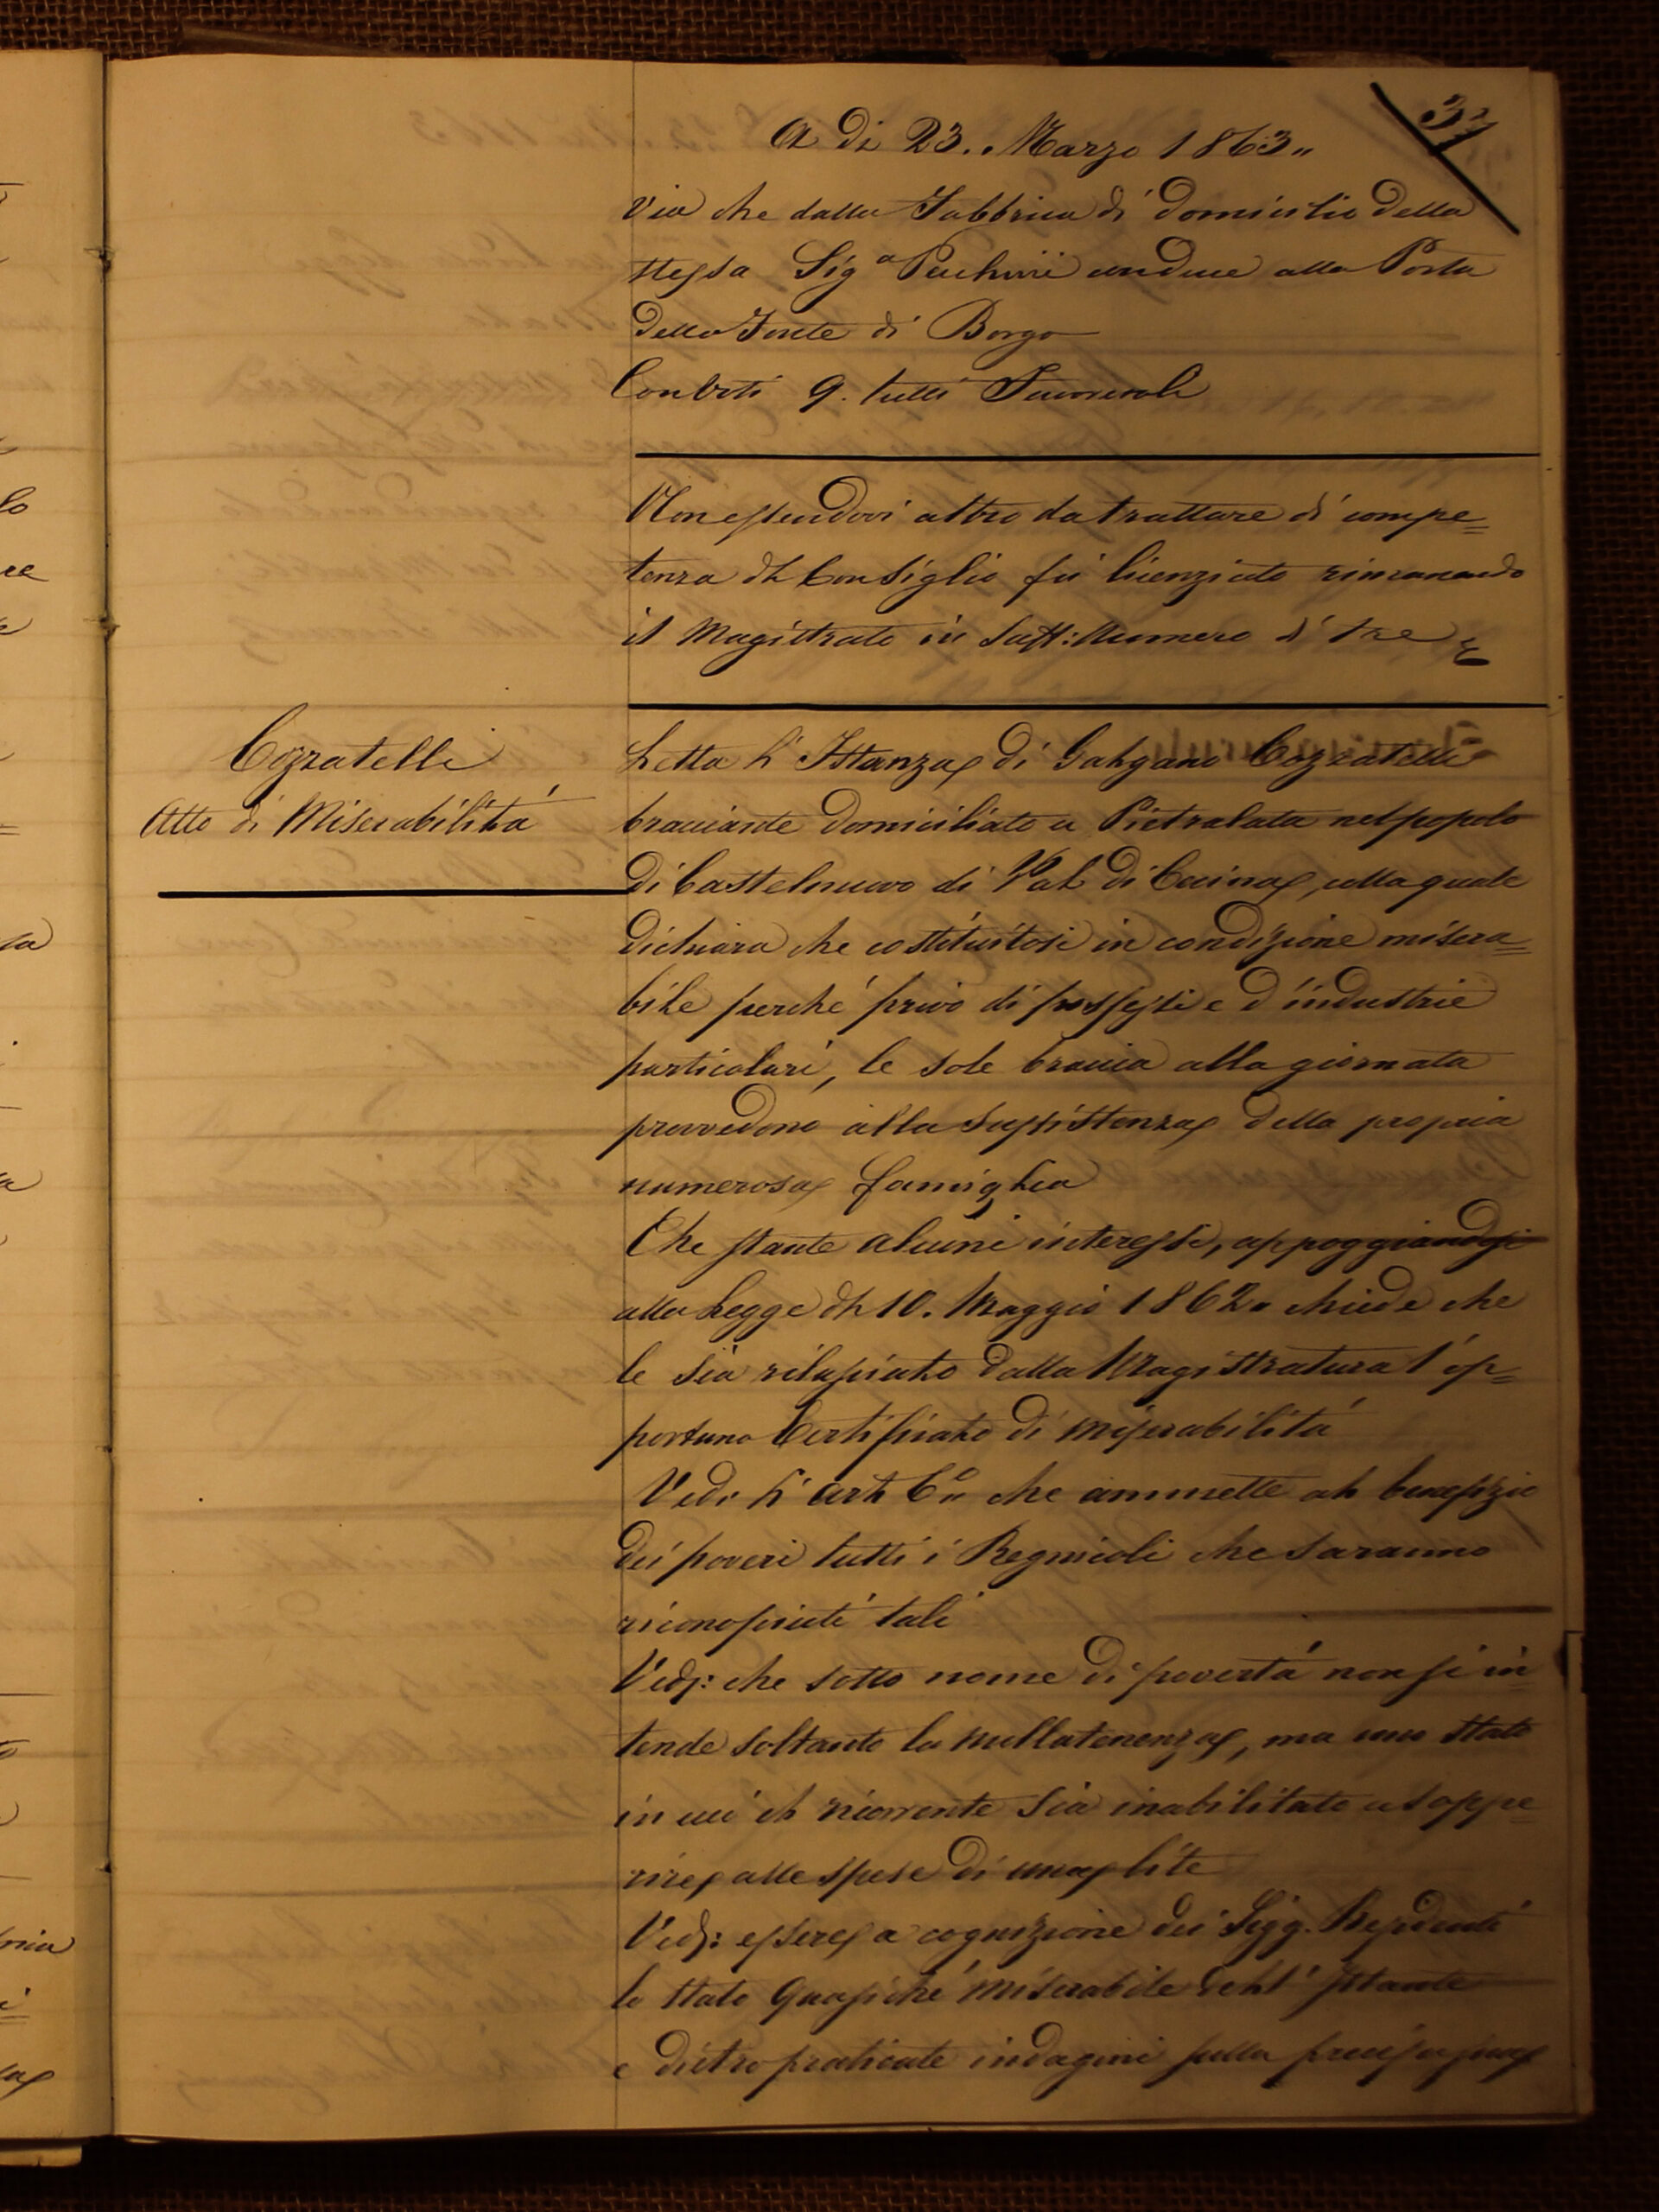 37
A dì 23. Marzo 1863„
Via che dalla Fabbrica di domicilio della
stessa Sig.ª conduce alla Porta
della Fonte di Borgo
Con Voti 9. tutti Favorevoli
Non essendovi altro da trattare di compe=
tenza del Consiglio fù licenziato rimanendo
il Magistrato in Suff: Numero di tre
Cozzatelli
Atto di Miserabilità
Letta l'Istanza di Galgano Cozzatelli
bracciante domiciliato a Pietralata nel popolo
di Castelnuovo di Val di Cecina, colla quale
dichiara che costituitosi in condizione misera=
bile perché privo di possessi e d'industrie
particolari, le sole braccia alla giornata
provvedono alla sussistenza della propria
numerosa famiglia
Che stante alcuni interessi, appoggiandosi
alla Legge del 10. Maggio 1862. chiede che
le sia rilasciato dalla Magistratura l'op=
portuno Certificato di miserabilità
Ved: l'art: 6.º che ammette al benefizio
dei poveri tutti i Regnicoli che saranno
riconosciuti tali
Ved: che sotto nome di povertà non si in=
tende soltanto la nullatenenza, ma uno stato
in cui il ricorrente sia inabilitato a soppe=
rire alle spese di una lite
Ved: essere a cognizione dei Sigg. Residenti
lo stato quasiché miserabile dell'Istante
e dietro praticate indagini sulla precisa sua